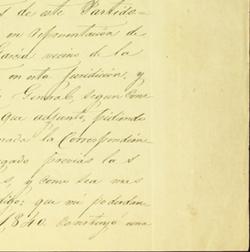 s de este Partido
en representacion de
Garcia vecino de la
en esta juridicion, y
General, segun cons
que adjunto, pidiendo
nada la Correspondien
gado previas las s
s, y como sea mas
digo: que mi poderdan
1,840 construyó una